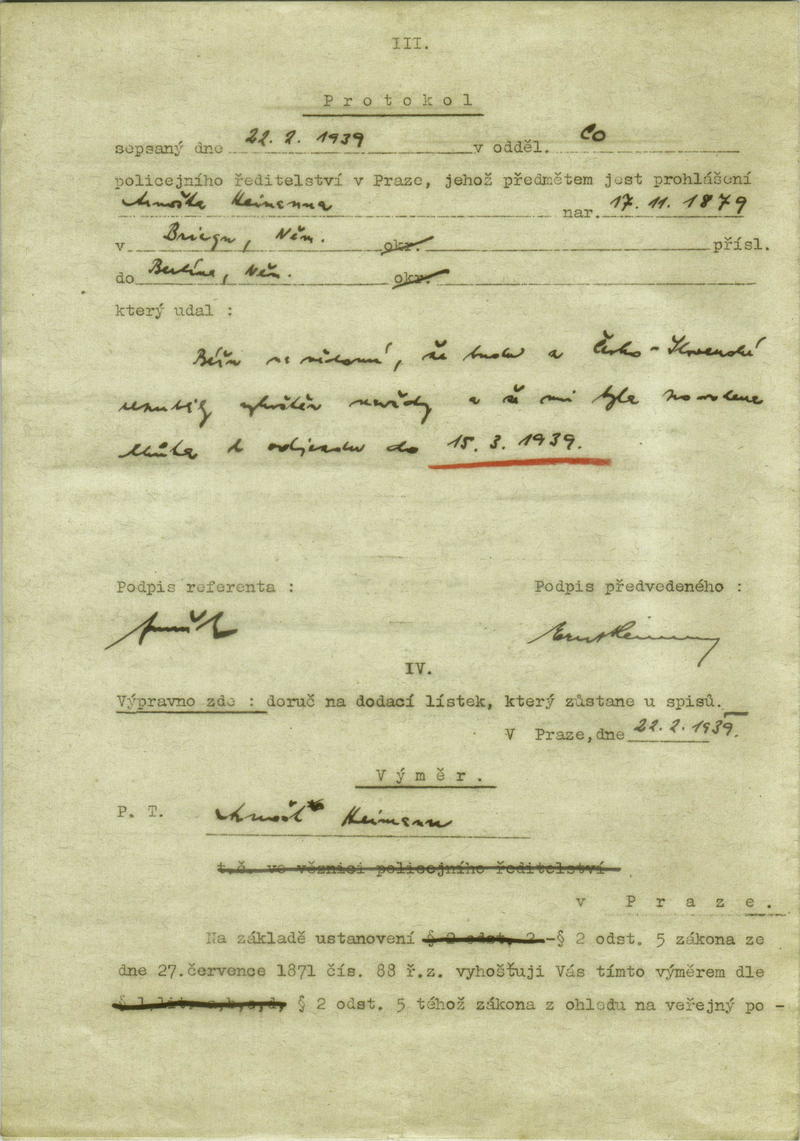 III.
Protokol
sepsaný dne 22. 2. 1939 v odděl. Co
policejního ředitelství v Praze, jehož předmětem jest prohlášení
Arnošta Heimanna nar. 17. 11. 1879
v Briegu, Něm. okr. přísl.
do Berlína, Něm. okr.
který udal :
Béřu na vědomí, že budu z Česko-Slovenské
republiky vyhoštěn navždy a že mi byla povolena
lhůta k odjezdu do 15. 3. 1939.
Podpis referenta : Podpis předvedeného :
Ernst Heimann
IV.
Výpravno zde : doruč na dodací lístek, který zůstane u spisů.
V Praze, dne 22. 2. 1939.
Výměr.
P. T. Arnošt Heimann
t.č. ve věznici policejního ředitelství
v Praze.
Na základě ustanovení § 2 odst. 2 -§ 2 odst. 5 zákona ze
dne 27.července 1871 čís. 88 ř.z. vyhošťuji Vás tímto výměrem dle
§ 1,lit. a,b,c,d, § 2 odst. 5 téhož zákona z ohledu na veřejný po -